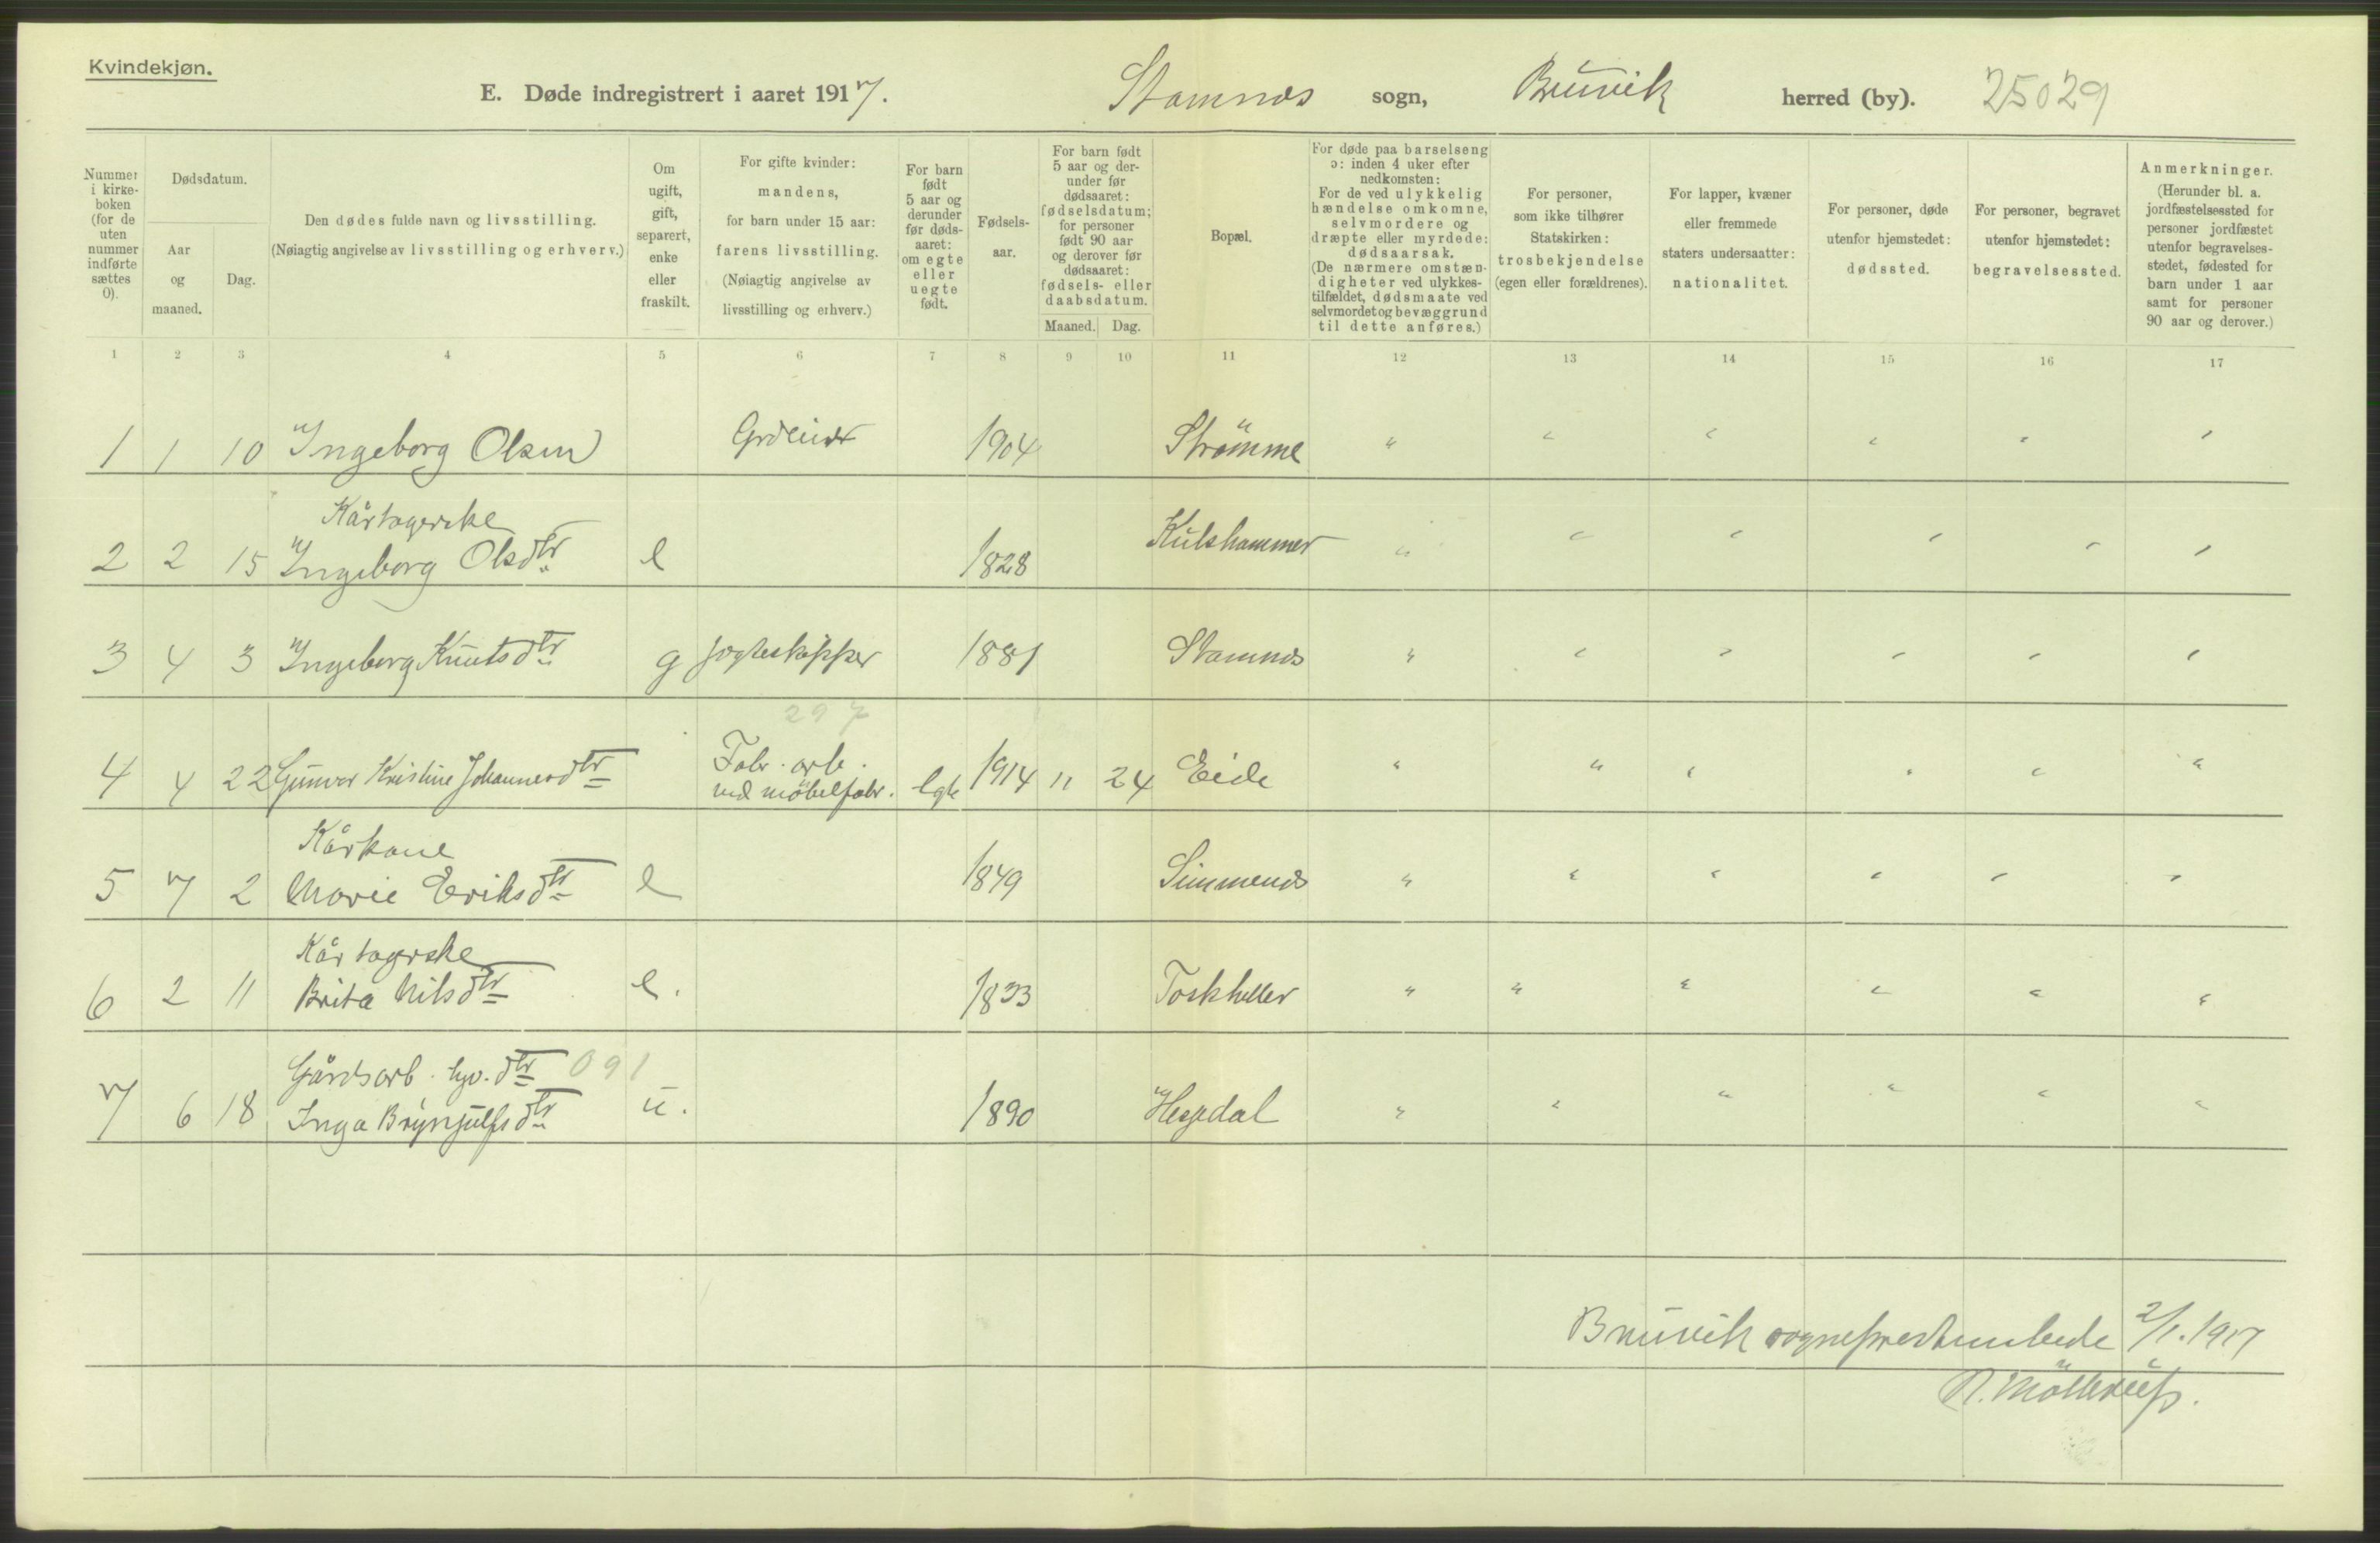 Kvindekjøn.
E. Døde indregistrert i aaret 1917. Stamnes sogn, Bruvik herred (by). 25029
Nummer i kirkeboken (for de uten nummer indførte sættes 0).
Dødsdatum.
Aar og maaned.
Dag.
Den dødes fulde navn og livsstilling.
(Nøiagtig angivelse av livsstilling og erhverv.)
Om ugift, gift, separert, enke eller fraskilt.
For gifte kvinder: mandens, for barn under 15 aar: farens livsstilling. (Nøiagtig angivelse av livsstilling og erhverv.)
For barn født 5 aar og derunder før dødsaaret: om egte eller uegte født.
Fødselsaar.
For barn født 5 aar og derunder før dødsaaret: fødselsdatum; for personer født 90 aar og derover før dødsaaret: fødsels- eller daabsdatum.
Maaned. Dag.
Bopæl.
For døde paa barselseng ɔ: inden 4 uker efter nedkomsten: For de ved ulykkelig hændelse omkomne, selvmordere og dræpte eller myrdede: dødsaarsak. (De nærmere omstændigheter ved ulykkestilfældet, dødsmaate ved selvmordet og bevæggrund til dette anføres.)
For personer, som ikke tilhører Statskirken: trosbekjendelse (egen eller forældrenes).
For lapper, kvæner eller fremmede staters undersaatter: nationalitet.
For personer, døde utenfor hjemstedet: dødssted.
For personer, begravet utenfor hjemstedet: begravelsessted.
Anmerkninger. (Herunder bl. a. jordfæstelsessted for personer jordfæstet utenfor begravelsesstedet, fødested for barn under 1 aar samt for personer 90 aar og derover.)
1 2 3 4 5 6 7 8 9 10 11 12 13 14 15 16 17
1 1 10 Ingeborg Olsen 1904 Strømme " " " " " "
Kårtagerske
2 2 15 Ingeborg Olsdtr e 1828 Kulshammer " " " " " "
3 4 3 Ingeborg Knutsdtr g jagteskipper 1881 Stamnes " " " " " "
297
Fabr. arb.
4 4 22 Gunvor Kristine Johannesdtr ved møbelfabr. egte 1914 11 24 Eide " " " " " "
Kårkone
5 7 2 Marie Eriksdtr e 1849 Simmenes " " " " " "
Kårtagerske
6 2 11 Brita Nilsdtr e. 1833 " " " " " "
Gårdsarb. hjv. dtr 091
7 6 18 Inga Brynjulfsdtr u. 1890 Hesjedal " " " " " "
Bruvik sogneprestembede 2/1. 1917